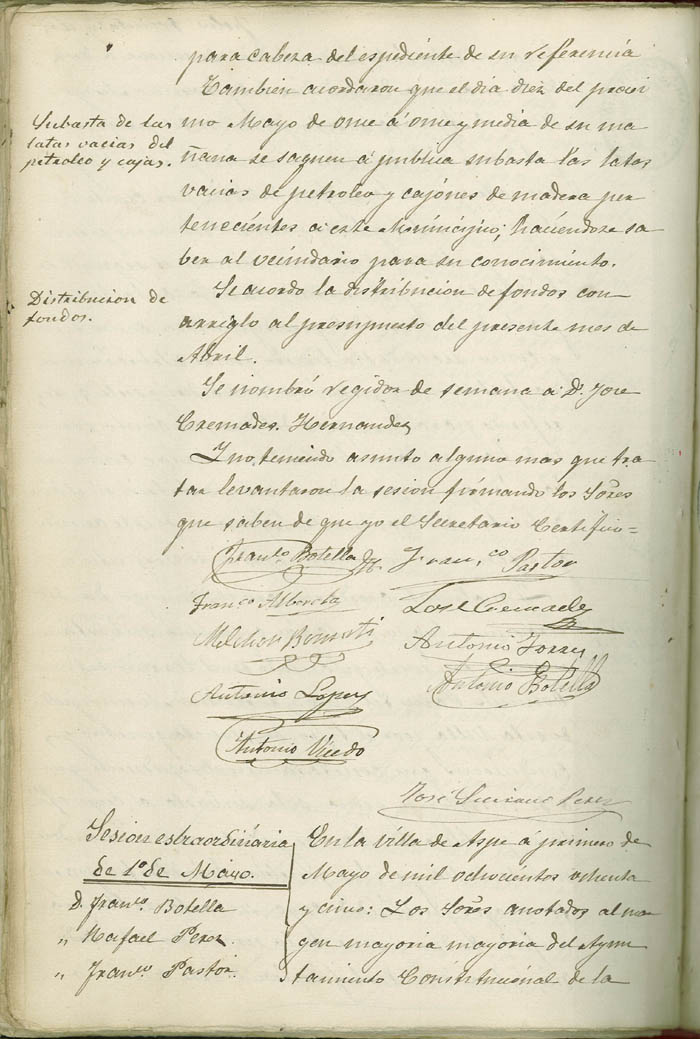 para cabeza del espediente de su referencia
Tambien acordaron que el dia diez del procsi
Subasta de las
latas vacias del
petroleo y cajas.
mo Mayo de once á once y media de su ma
ñana se saquen á publica subasta las latas
vacias de petroleo y cajónes de madera per
tenecientes a este Municipio; haciendose sa
ber al vecindario para su conocimiento.
Distribucion de
fondos.
Se acordo la distribucion de fondos con
arriglo al presupuesto del presente mes de
Abril.
Se nombró regidor de semana a D. Jose
Cremades Hernandez
Y no teniendo asunto alguno mas que tra
tar levantaron la sesion firmando los Sores
que saben de que yo el Secretario Certifico=
Franco. Botella Franco Pastor
Franco Alberola Jose Cremades
Melchor Antonio Torres
Antonio Lopez Antonio Botella
Antonio Vicedo
José Perez
Sesion estraordinaria
de 1º de Mayo.
D. Franco Botella
" Rafael Perez
" Franco Pastor.
En la villa de Aspe á primero de
Mayo de mil ochocientos ochenta
y cinco: Los Sores anotados al mar
gen mayoria mayoria del Ayun
tamiento Constitucional de la